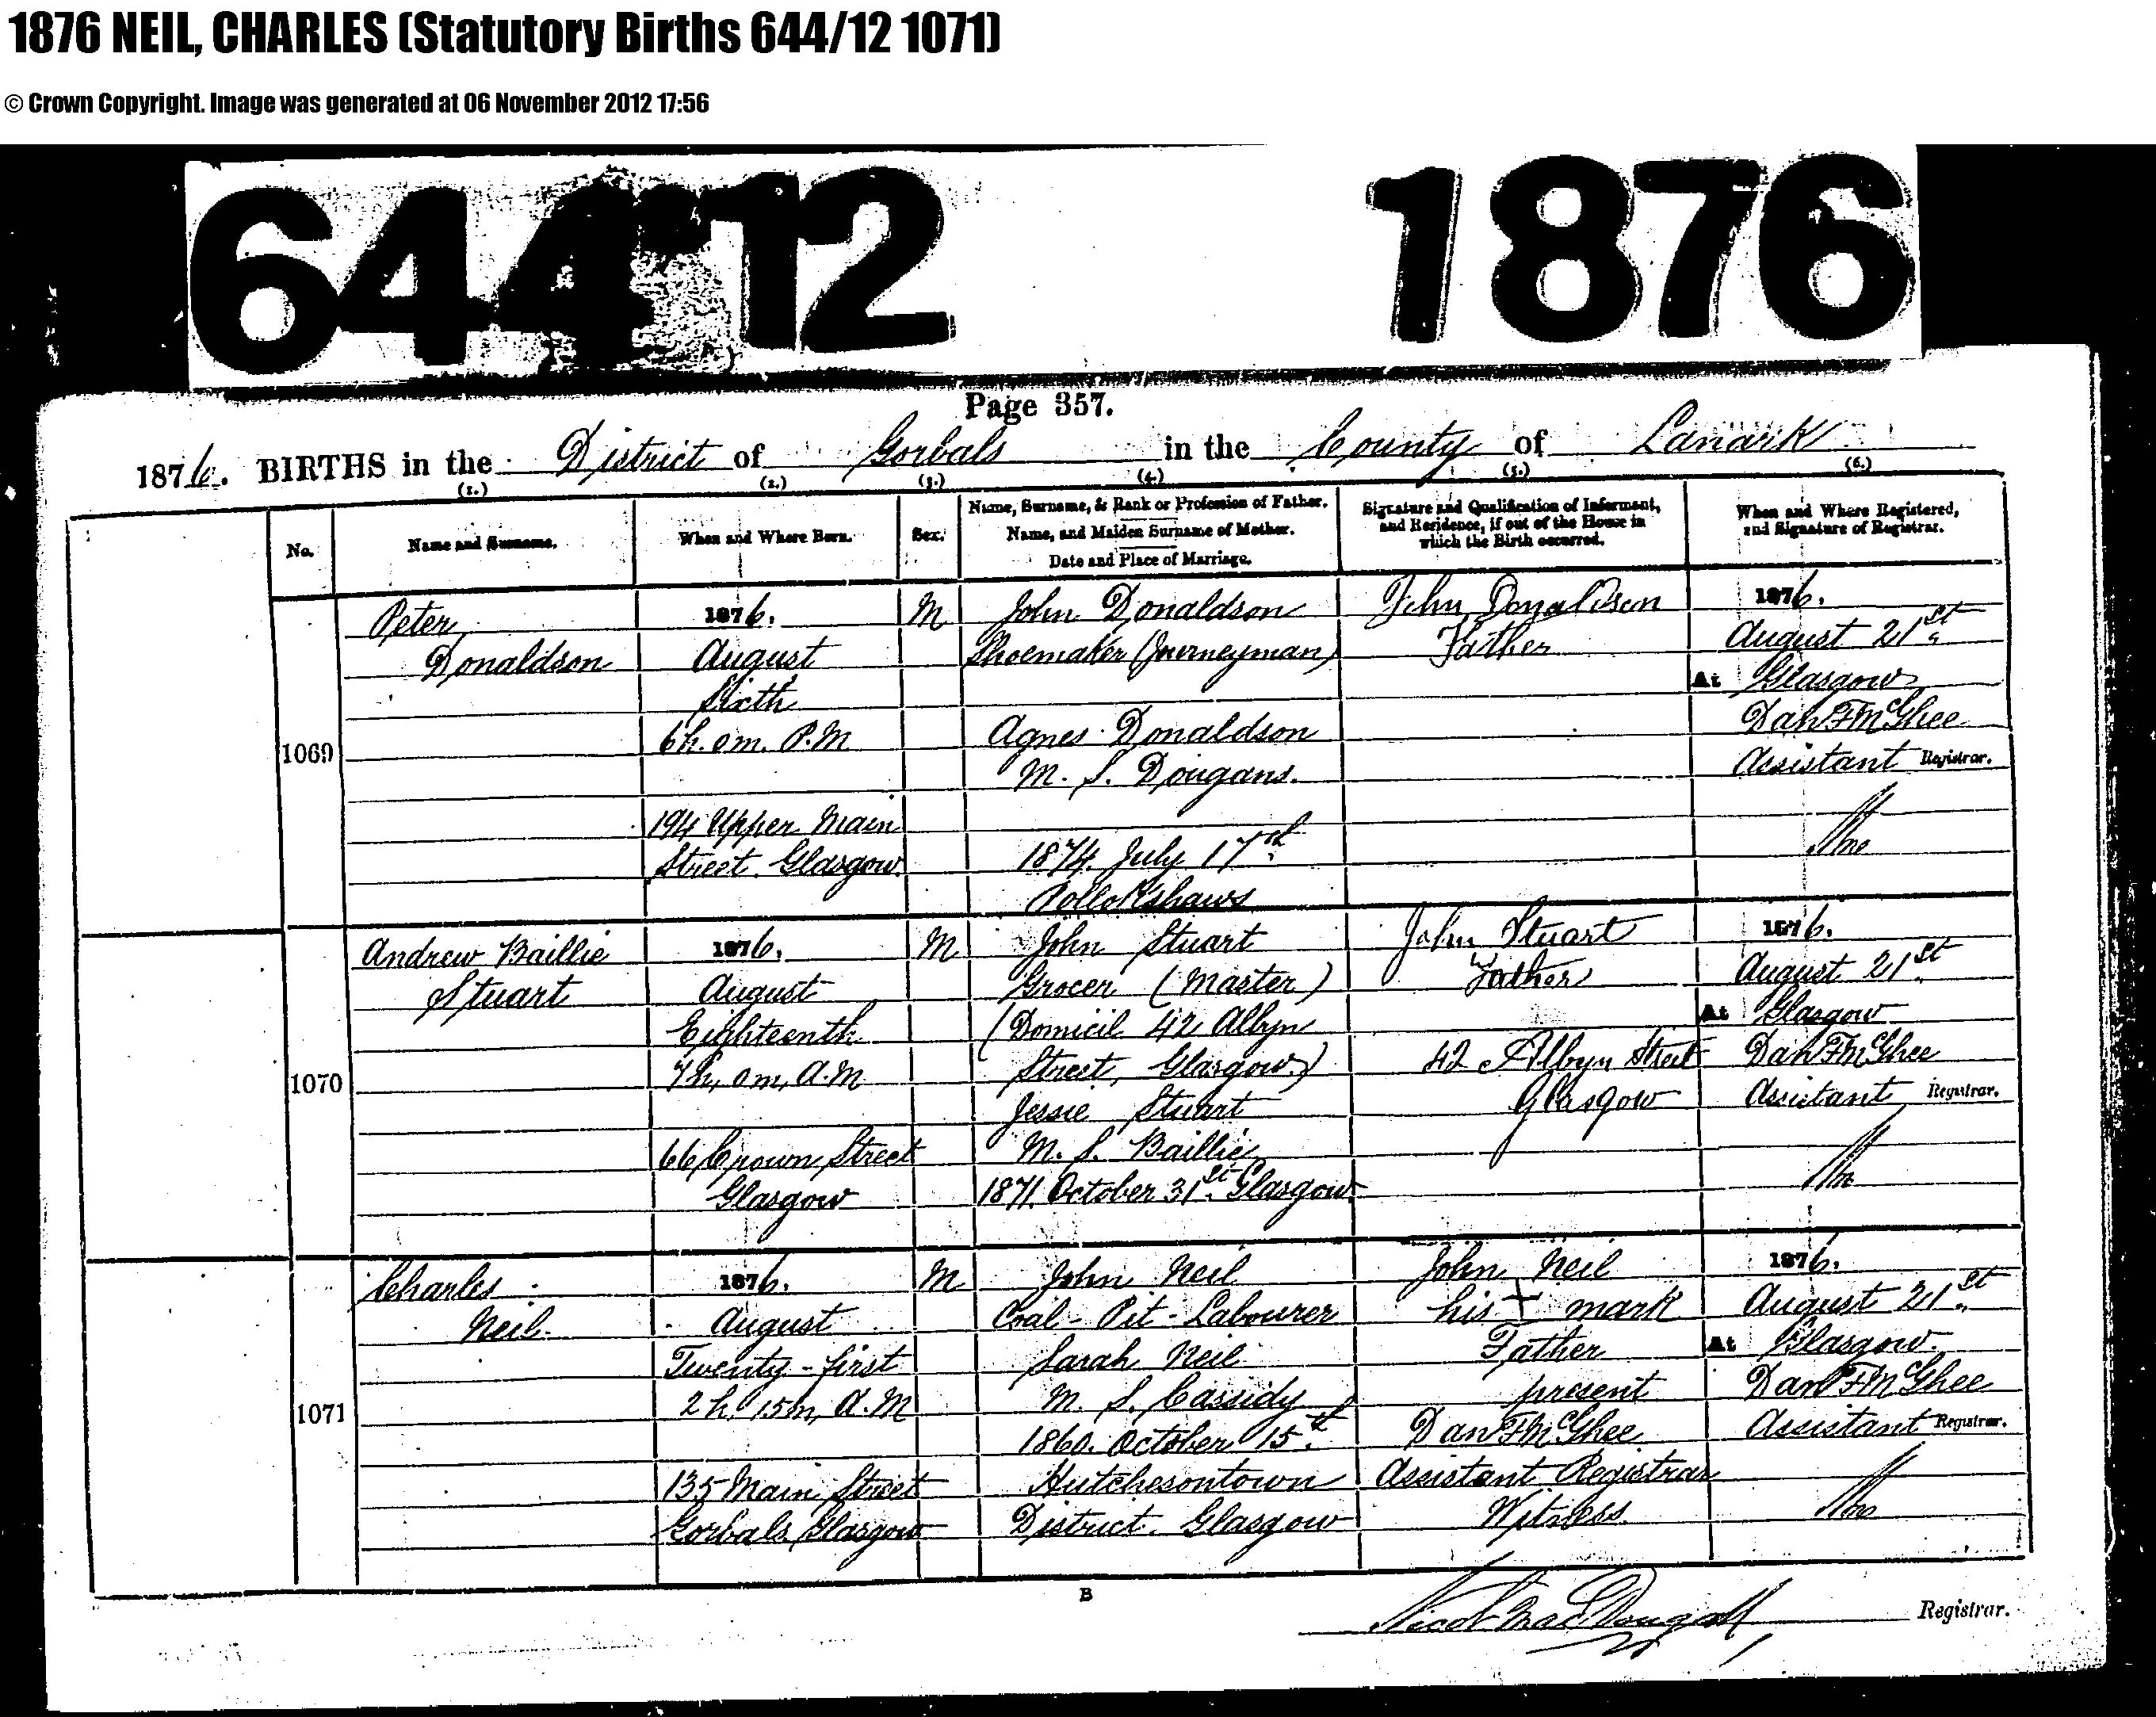 1876 NEIL, CHARLES (Statutory Births 644/12 1071)
© Crown Copyright. Image was generated at 06 November 2012 17:56
644 12 1876
Page 357.
1876. BIRTHS in the District of Gorbals in the County of Lanark
(1.) (2.) (3.) (4.) (5.) (6.)
No.
Name and Surname.
When and Where Born.
Sex.
Name, Surname, & Rank or Profession of Father.
Name, and Maiden Surname of Mother.
Date and Place of Marriage.
Signature and Qualification of Informant,
and Residence, if out of the House in
which the Birth occurred.
When and Where Registered,
and Signature of Registrar.
1069
Peter
Donaldson
1876.
August
Sixth
6h. 0m. P.M
194 Upper Main
Street. Glasgow.
M
John Donaldson
Shoemaker (Journeyman)
Agnes Donaldson
M. S. Dougans.
1874. July 17th
Pollokshaws
John Donaldson
Father
1876.
August 21st
At Glasgow
Dan F McGhee
Assistant Registrar.
1070
Andrew Baillie
Stuart
1876.
August
Eighteenth
7h, 0m, A.M
66 Crown Street
Glasgow
M
John Stuart
Grocer (Master)
(Domicil 42 Albyn
Street, Glasgow.)
Jessie Stuart
M. S. Baillie
1871. October 31st Glasgow
John Stuart
Father
42 Albyn Street
Glasgow
1876.
August 21st
At Glasgow
Dan F McGhee
Assistant Registrar.
1071
Charles
Neil
1876.
August
Twenty-first
2h. 15m, A.M
135 Main Street
Gorbals, Glasgow
M
John Neil
Coal-Pit-Labourer
Sarah Neil
M. S. Cassidy
1860. October 15th
Hutchesontown
District. Glasgow
John Neil
his X mark
Father
present
Dan F McGhee
Assistant Registrar
Witness.
1876.
August 21st
At Glasgow.
Dan F McGhee
Assistant Registrar.
B
Nicol MacDougall Registrar.